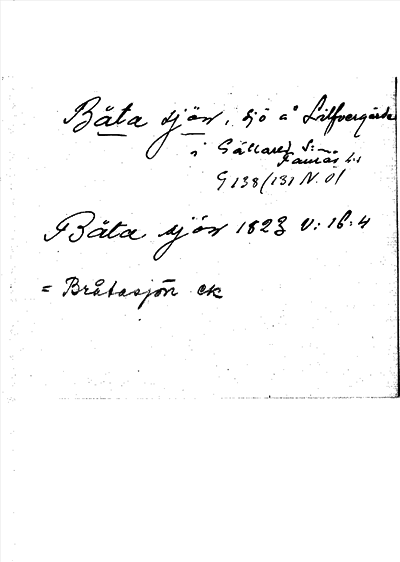 Båta sjön, sjö å Lilfvergårde
i Gällared S:n
Faurås h:d
G 138 (131 N.O)
Båta sjön 1823 V:16:4
= Bråtasjön ek